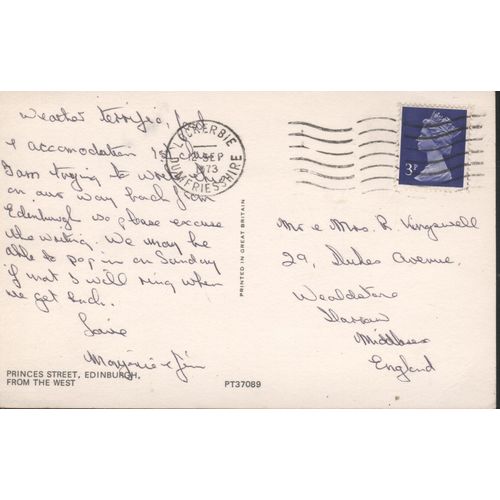 Weather terrific, food
& accomodation 1st class
I am trying to write this
on our way back from
Edinburgh so please excuse
the writing. We may be
able to pop in on Sunday
if not I will ring when
we get back.
Love
Marjorie & Jim
PRINCES STREET, EDINBURGH,
FROM THE WEST
PT37089
PRINTED IN GREAT BRITAIN
LOCKERBIE
SEP
1973
DUMFRIESSHIRE
3P
Mr & Mrs. R. Vingswell
29, Dukes Avenue.
Wealdstone
Harrow
Middlesex
England